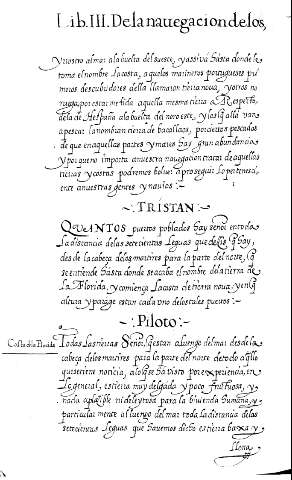 Lib. III. De la nauegacion de los,
y nuestro al mar a la buelta del sueste, y assi va hasta donde le
toma el nombre la costa, a quelos marineros portugueses pri
meros descubridores della llamaron tierra noua, y otros no
ruega, por estar metida aquella mesma tierra a Respecto
dela de Hespaña ala buelta del nor este, y los q̃ alla van
a pescar la nombran tierra de bacallaos, por ciertos pescados
de que en aquellas partes y mares hay gran abundancia
Y por que no importa a nuestra nauegacion tratar de aquellas
tierras y costas podremos boluer a proseguir lo pertenesci
ente a nuestras gentes y nauios :~
~: TRISTAN :~
QUANTOS puertos poblados hay señor en toda
la distancia delas setecientas leguas que dezis q̃ hay,
des de la cabeça delos martires para la parte del norte, q̃
se entiende hasta donde se acaba el nombre dela tierra de
La Florida, y comiença la costa de tierra noua, y en q̃
altura y paraje estan cada vno delos tales puertos :~
~: Piloto :~
Costa dela Florida
Todas las tierras Señor, q̃ estan a luengo del mar des de la
cabeça delos martires para la parte del norte de todo aq̃llo
que se tiene noticia, a lo q̃ se ha visto por experiencia, en
lo general, es tierra muy delgada y poco fructuosa, y
nada aplazible ni deleytosa para la biuienda humana, y
particular mente al luengo del mar toda la distancia delas
setecientas leguas que hauemos dicho es tierra baxa y
llena